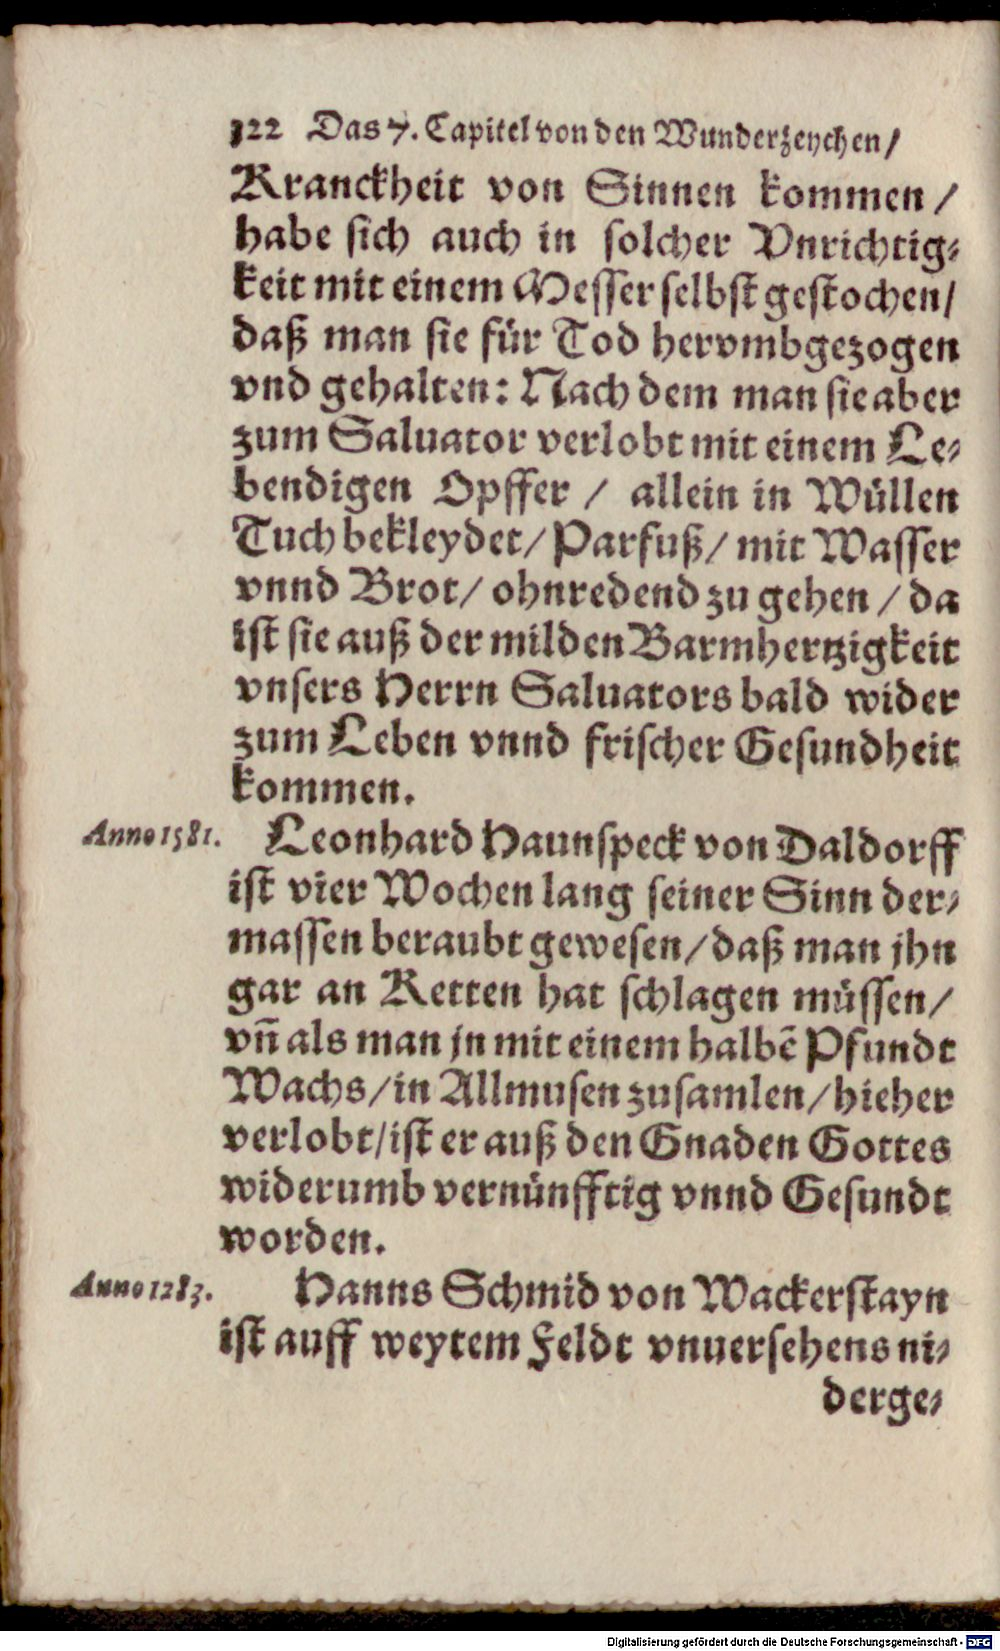 322 Das 7. Capitel von den Wunderzeychen/
Kranckheit von Sinnen kommen /
habe sich auch in solcher Vnrichtig-
keit mit einem Messer selbst gestochen/
daß man sie für Tod hervmbgezogen
vnd gehalten: Nach dem man sie aber
zum Saluator verlobt mit einem Le-
bendigen Opffer / allein in Wüllen
Tuch bekleydet/ Parfuß/ mit Wasser
vnnd Brot/ ohnredend zu gehen / da
ist sie auß der milden Barmhertzigkeit
vnsers Herrn Saluators bald wider
zum Leben vnnd frischer Gesundheit
kommen.
Anno 1581. Leonhard Haunspeck von Daldorff
ist vier Wochen lang seiner Sinn der-
massen beraubt gewesen/ daß man jhn
gar an Ketten hat schlagen müssen/
vñ als man jn mit einem halbẽ Pfundt
Wachs/ in Allmusen zusamlen/ hieher
verlobt/ ist er auß den Gnaden Gottes
widerumb vernünfftig vnnd Gesundt
worden.
Anno 1283. Hanns Schmid von Wackerstayn
ist auff weytem Feldt vnuersehens ni-
derge-
Digitalisierung gefördert durch die Deutsche Forschungsgemeinschaft - DFG